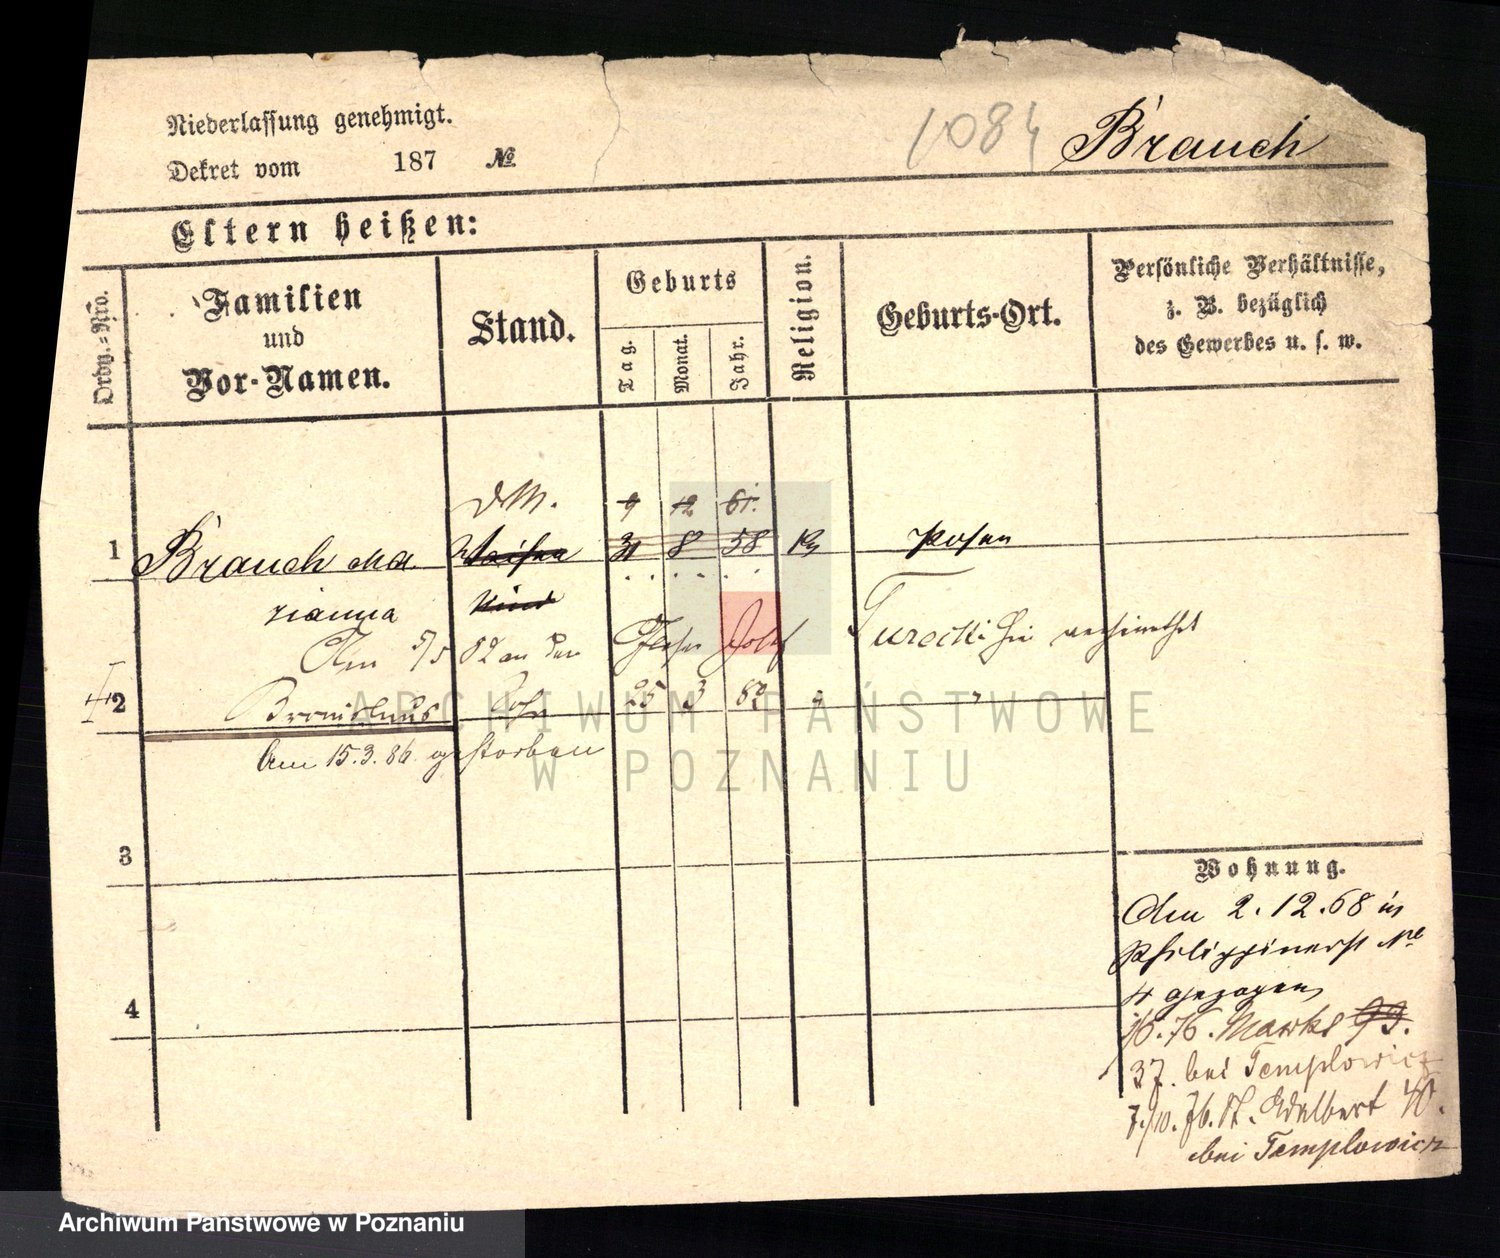 Niederlassung genehmigt.
Dekret vom 187 №
1084 Brauch
Eltern heißen:
Ordn.-Nro.
Familien
und
Vor-Namen.
Stand.
Geburts
Tag.
Monat.
Jahr.
Religion.
Geburts-Ort.
Persönliche Verhältnisse,
z. B. bezüglich
des Gewerbes u. s. w.
DM. 9 12 61.
1 Brauch Ma Waisen 31 8 58 Posen
rianna Kind
Am 5/5 82 an den Josef Turecki verheirathet
2 Sohn 25 3 82
Am 15.3.86 gestorben
3
4
Wohnung.
Am 2.12.68 in
Philippinerst №
4 gezogen
76. Markt 93.
37. bei Templowicz
7./10. 76. St. Adalbert 40.
bei Templowicz
ARCHIWUM PAŃSTWOWE
W POZNANIU
Archiwum Państwowe w Poznaniu